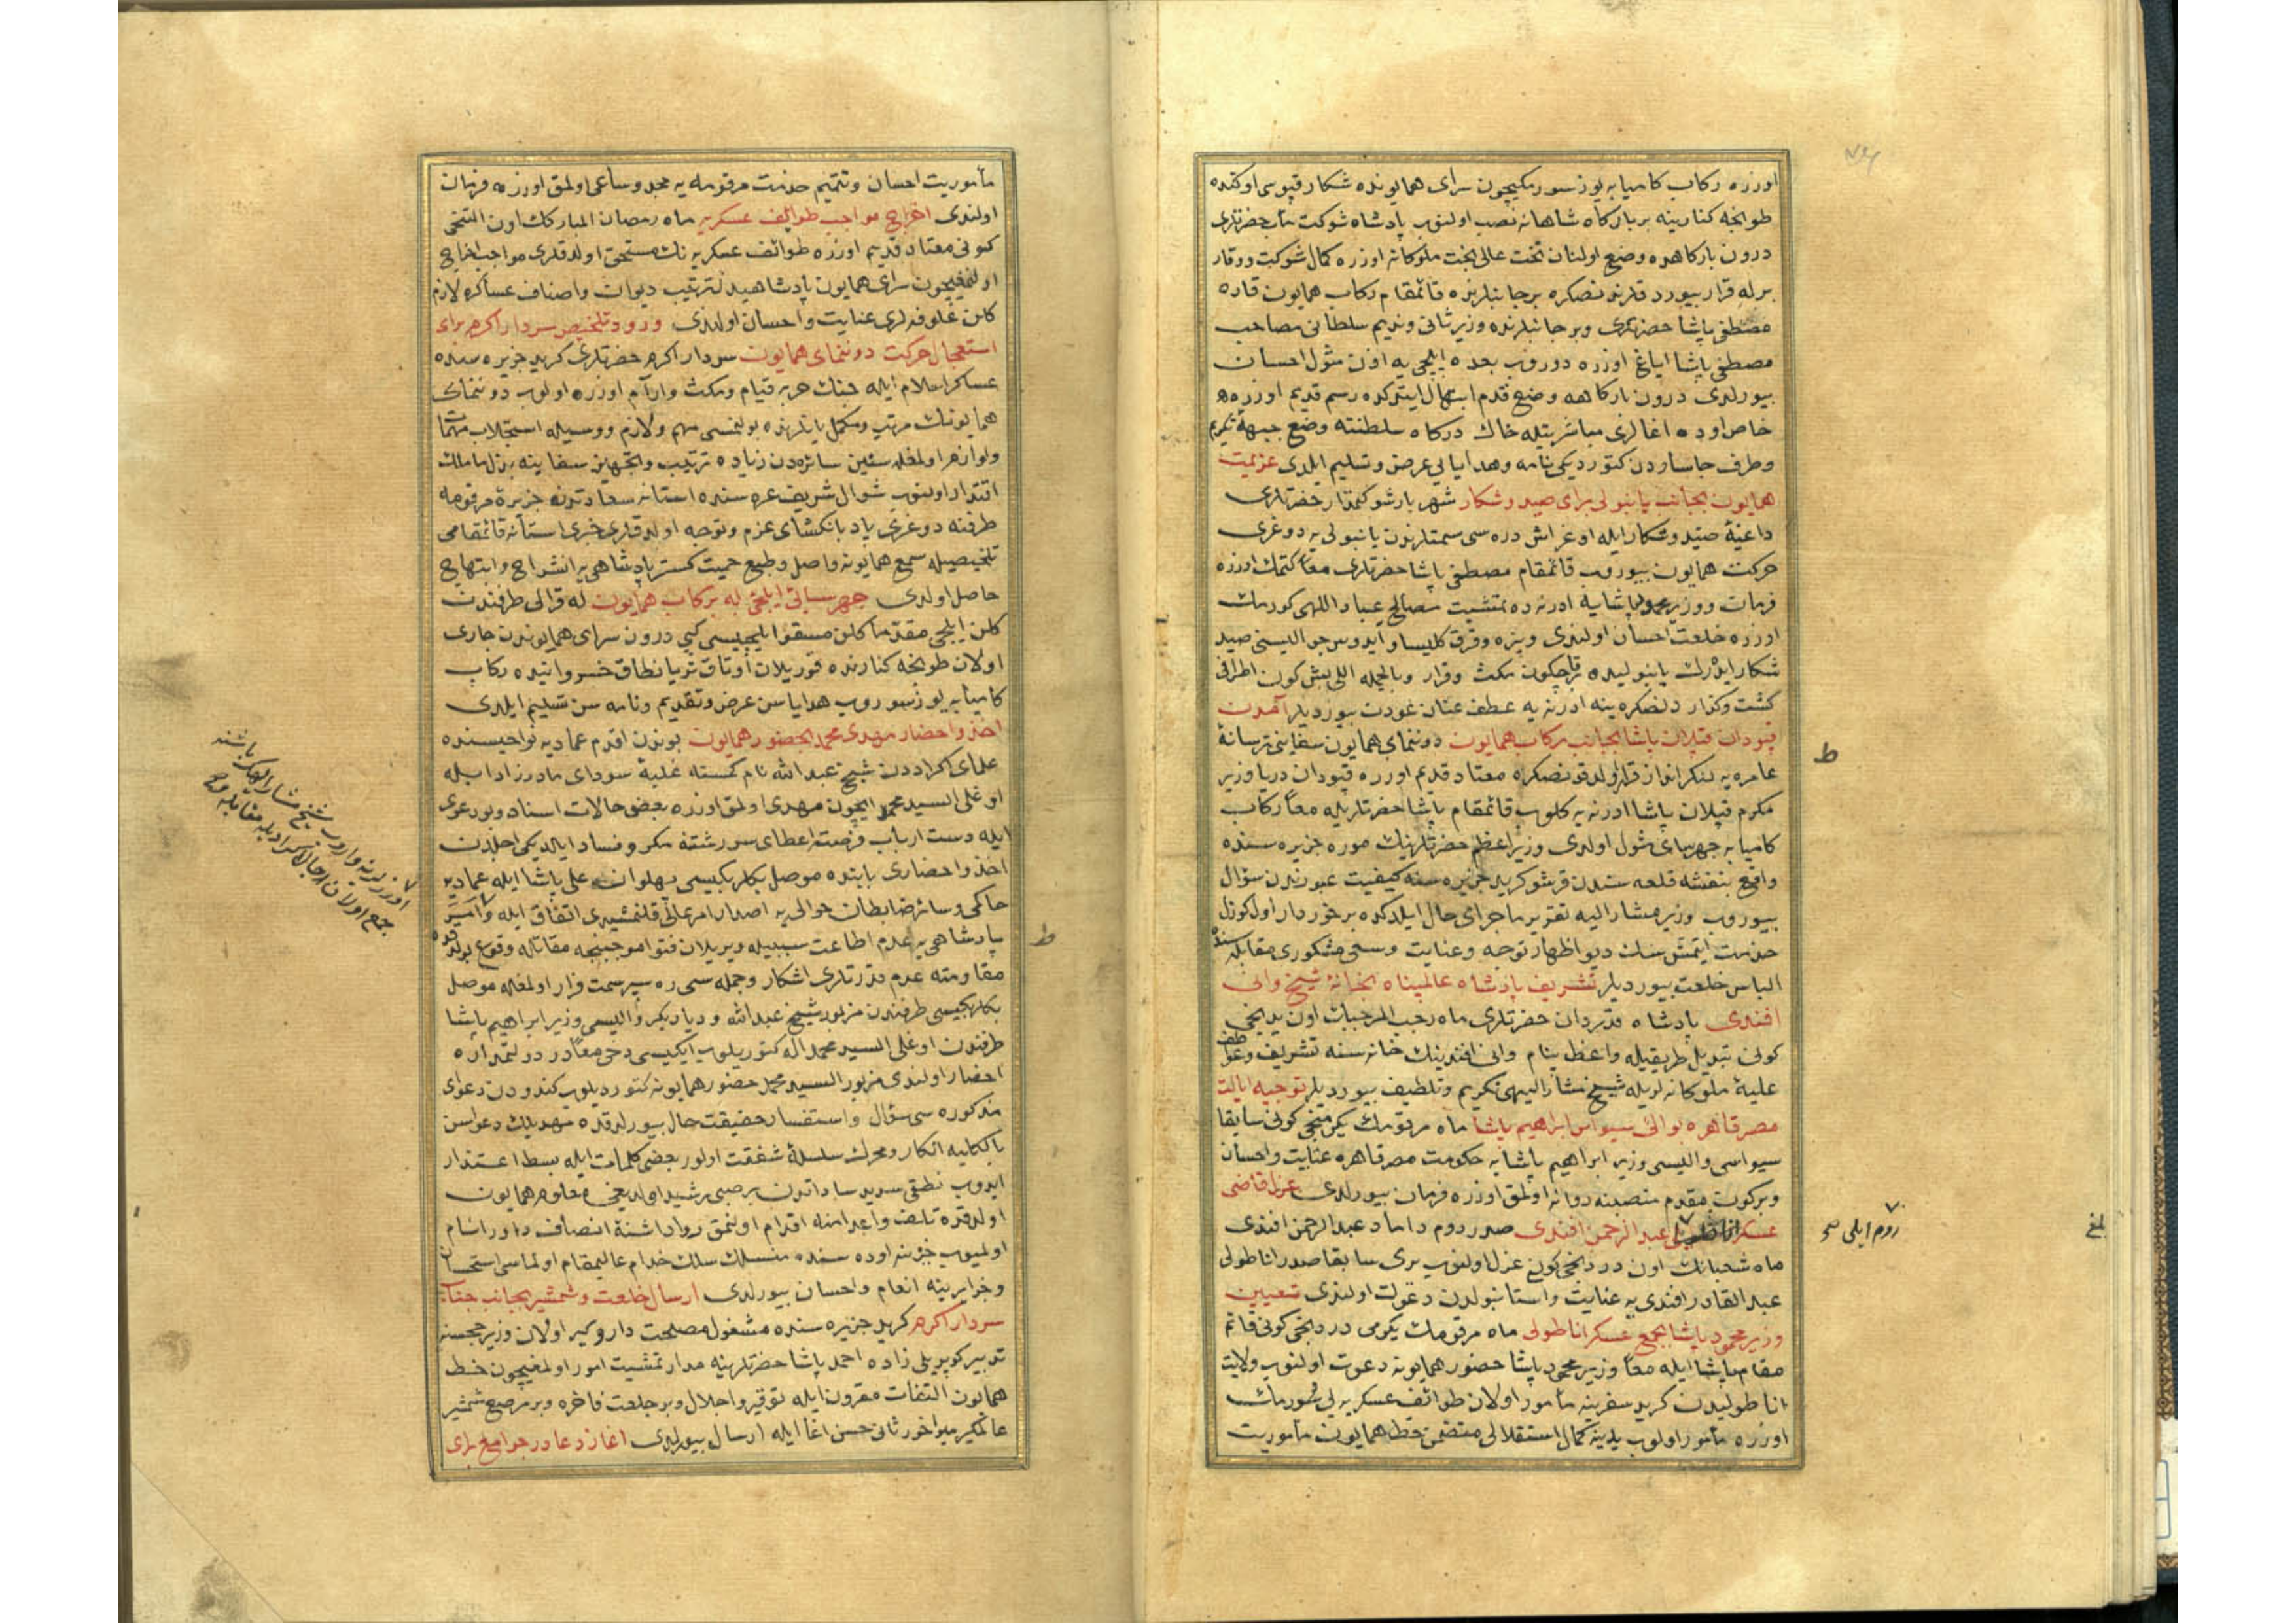 اوزره ركاب كاميابه يوز سورمكيچون سراى همايونده شكار قپوسى اوكنده
طونجه كنارينه بر باركاه شاهانه نصب اولنوب پادشاه شوكت مآب حضرتلرى
درون باركاهده وضع اولنان تخت عالى بخت ملوكانه اوزره كمال شوكت ووقار
برله قرار بيوردقلرندنصكره بر جانبلرنده قائمقام ركاب همايون قاره
مصطفى پاشا حضرتلرى وبر جانبلرنده وزير ثانى ونديم سلطانى مصاحب
مصطفى پاشا اياغ اوزره دوروب بعده ايلچى يه اذن مثول احسان
بيورلدى درون باركاهه وضع قدم ابتهال ايتدكده رسم قديم اوزره
خاص اوده اغالرى مباشرتيله خاك دركاه سلطنته وضع جبههٔ تكريم
وطرف جاساردن كتورديكى نامه وهدايايى عرض وتسليم ايلدى عزيمت
همايون بجانب يانبولى براى صيد وشكار شهريار شوكتمدار حضرتلرى
داعيهٔ صيد وشكار ايله اوغراش دره سى سمتلرندن يانبولى يه دوغرى
حركت همايون بيوروب قائمقام مصطفى پاشا حضرتلرى معا كتمك اوزره
فرمان ووزير محمود پاشايه ادرنه ده تمشيت مصالح عباد اللهى كورمك
اوزره خلعت احسان اولندى ويزه وقرق كليسا و ايدوس حواليسنى صيد
شكار ايدرك يانبوليده قاچكون مكث وقرار وبالجمله اللى بش كون اطرافى
كشت وكذار دنصكره ينه ادرنه يه عطف عنان عودت بيورديلر آمدن
قپودان قپلان پاشا بجانب ركاب همايون دوننماى همايون سفاينى ترسانهٔ
عامره يه لنكر انداز قرار اولدقدنصكره معتاد قديم اوزره قپودان دريا وزير
مكرم قپلان پاشا ادرنه يه كلوب قائمقام پاشا حضرتلريله معاً ركاب
كاميابه چهرساى مثول اولدى وزير اعظم حضرتلرينك موره جزيره سنده
واقع بنفشه قلعه سندن قرشو كريد جزيره سنه كيفيت عبورندن سؤال
بيوروب وزير مشار اليه تقرير ماجراى حال ايلدكده برخوردار اول كوزل
خدمت ايتمشسك ديو اظهار توجه وعنايت وسعى مشكورى مقابله سنده
الباس خلعت بيورديلر تشريف پادشاه عالمپناه بخانهٔ شيخ وانى
افندى پادشاه قدردان حضرتلرى ماه رجب المرجبك اون يدنجى
كونى تبديل طريقيله واعظ بنام وانى افندينك خانه سنه تشريف
عليهٔ ملوكانه لريله شيخ مشار اليهى تكريم وتلطيف بيورديلر توجيه ايالت
مصر قاهره بوالئ سيواس ابراهيم پاشا ماه مرقومك يكرمنجى كونى سابقا
سيواس واليسى وزير ابراهيم پاشايه حكومت مصر قاهره عنايت واحسان
وبركون مقدم منصبنه روانه اولمق اوزره فرمان بيورلدى عزل قاضى
عسكر عبد الرحمن افندى صدر روم داماد عبد الرحمن افندى
روم ايلى صح
ماه شعبانك اون دردنجى كونى عزل اولنوب يرى سابقا صدر اناطولى
عبد القادر افندى يه عنايت واستانبولدن دعوت اولندى تعيين
وزير محمود پاشا بجمع عسكر اناطولى ماه مرقومك يكرمى دردنجى كونى قائم
مقام پاشا ايله معاً وزير محمود پاشا حضور همايونه دعوت اولنوب ولايت
اناطوليدن كريد سفرينه مأمور اولان طوائف عسكريه يى سورمك
اوزره مأمور اولوب يدينه كمال استقلالى متضمن خط همايون مأموريت
مأموريت احسان وتتميم خدمت مرقومه يه مجد وساعى اولمق اوزره فرمان
اولندى اخراج مواجب طوايف عسكريه ماه رمضان المباركك اون التنجى
كونى معتاد قديم اوزره طوائف عسكريه نك مستحق اولدقلرى مواجب اخراج
اولنمغيچون سراى همايون پادشاهيده ترتيب ديوان واصناف عساكره لازم
كلن علوفه لرى عنايت واحسان اولندى ورود تلخيص سردار اكرم براى
استعجال حركت دوننماى همايون سردار اكرم حضرتلرى كريد جزيره سنده
عساكر اسلام ايله جنك حربه قيام ومكث وآرام اوزره اولوب دوننماى
همايونك مرتب ومكمل يانلرنده بولنمسى مهم ولازم ووسيله استجلاب مهمات
ولوازم اولمغله سنين سائره دن زياده ترتيب وتجهيز سفاينه بذل ماملك
اقتدار اولنوب شوال شريف غره سنده استانه سعادتدن جزيرهٔ مرقومه
طرفنه دوغرى بادبانكشاى عزم وتوجه اولدقلرى خبرى استانه قائمقامى
تلخيصيله سمع همايونه واصل وطبع حميت كستر پادشاهى يه انشراح وابتهاج
حاصل اولدى چهرسائى ايلچئ له بركاب همايون له قرالى طرفندن
كلن ايلچى مقدما كلن مسقو ايلچيسى كبى درون سراى همايوندن جارى
اولان طونجه كنارنده قوريلان اوتاق ثريا نطاق خسروانيده ركاب
كاميابه يوز سوروب هداياسن عرض وتقديم ونامه سن تسليم ايلدى
اخذ واحضار مهدى محمد بحضور همايون بوندن اقدم عماديه نواحيسنده
علماى اكراددن شيخ عبد الله نام كمسنه غلبهٔ سوداى مادرزاد ايله
اوغلى السيد محمد ايچون مهدى اولمق اوزره بعض حالات اسناد وبو دعوى
ايله دست ارباب فرصته اعطاى سررشته مكر وفساد ايلديكى اجلدن
اخذ واحضارى بابنده موصل بكلربكيسى پهلوان على پاشا ايله عماديه
حاكمى وسائر ضابطان حوالى يه اصدار امر عالى قلنمشيدى اتفاق ايله
اوزرلرينه واروب شيخ مشار اليهك باشنه
جمع اولان رجال اكراد ايله مقابله صح
پادشاهى يه عدم اطاعت سببيله ويريلان فتوا موجبنجه مقاتله وقوع بولدقده
مقاومته عدم قدرتلرى اشكار وجمله سى ره سپر سمت فرار اولمغله موصل
بكلربكيسى طرفندن مزبور شيخ عبد الله ودياربكر واليسى وزير ابراهيم پاشا
طرفندن اوغلى السيد محمد اله كتوريلوب ايكيسى دخى معاً در دولتمداره
احضار اولندى مزبور السيد محمد حضور همايونه كتوريلوب كندودن دعواى
مذكوره سى سؤال واستفسار حقيقت حال بيورلدقده مهديلك دعواسن
بالكليه انكار ومحرك سلسلهٔ شفقت اولور بعضى كلمات ايله بسط اعتذار
ايدوب نطقى سديد ساداتدن بر صبى رشيد اولديغى معلوم همايون
اولدقده تلف واعدامنه اقدام اولنمق رواداشتهٔ انصاف داور انام
اولميوب خزينه اوده سنده منسلك سلك خدام عاليمقام اولماسى استحسان
وخزايرينه انعام واحسان بيورلدى ارسال خلعت وشمشير بجانب جناب
سردار اكرم كريد جزيره سنده مشغول مصلحت داروكير اولان وزير خجسته
تدبير كوپريلى زاده احمد پاشا حضرتلرينه مدار تمشيت امور اولمغيچون خط
همايون التفات مقرون ايله توقير واجلال وبر خلعت فاخره وبر مرصع شمشير
عالمكير ميراخور ثانى حسن اغا ايله ارسال بيورلدى اغاز دعا در جوامع براى